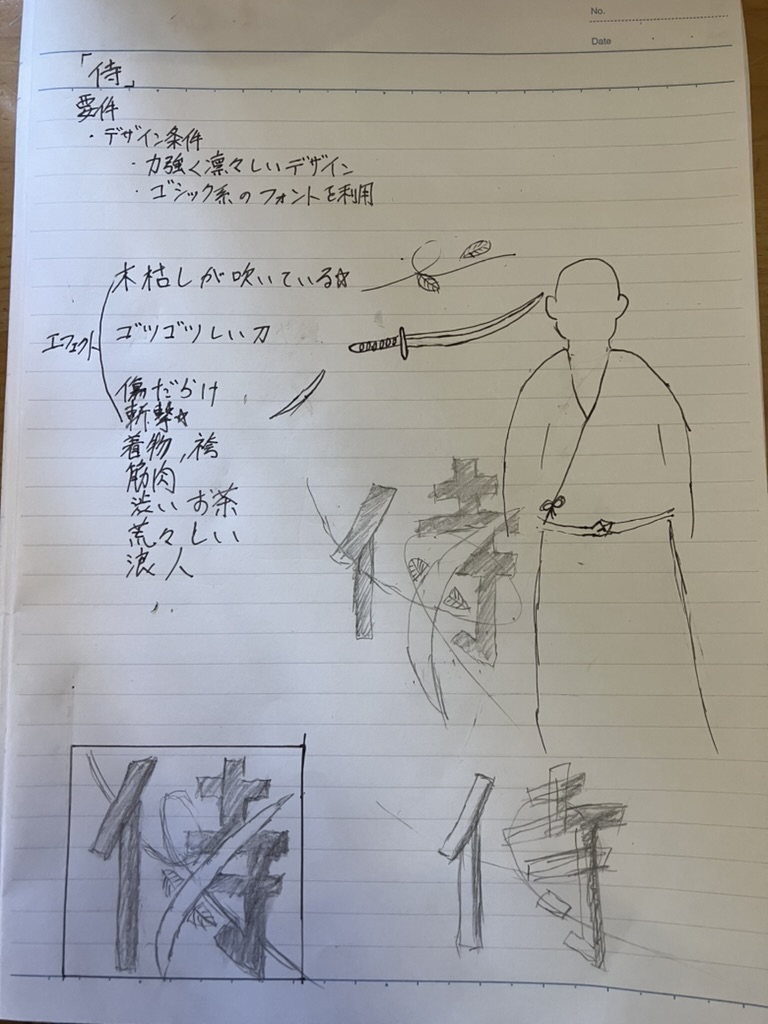 No.
Date
「侍」
要件
・デザイン条件
・力強く凛々しいデザイン
・ゴシック系のフォントを利用
木枯しが吹いている☆
エフェクト
ゴツゴツしい刀
傷だらけ
斬撃☆
着物、袴
筋肉
渋いお茶
荒々しい
浪人
侍
侍
侍